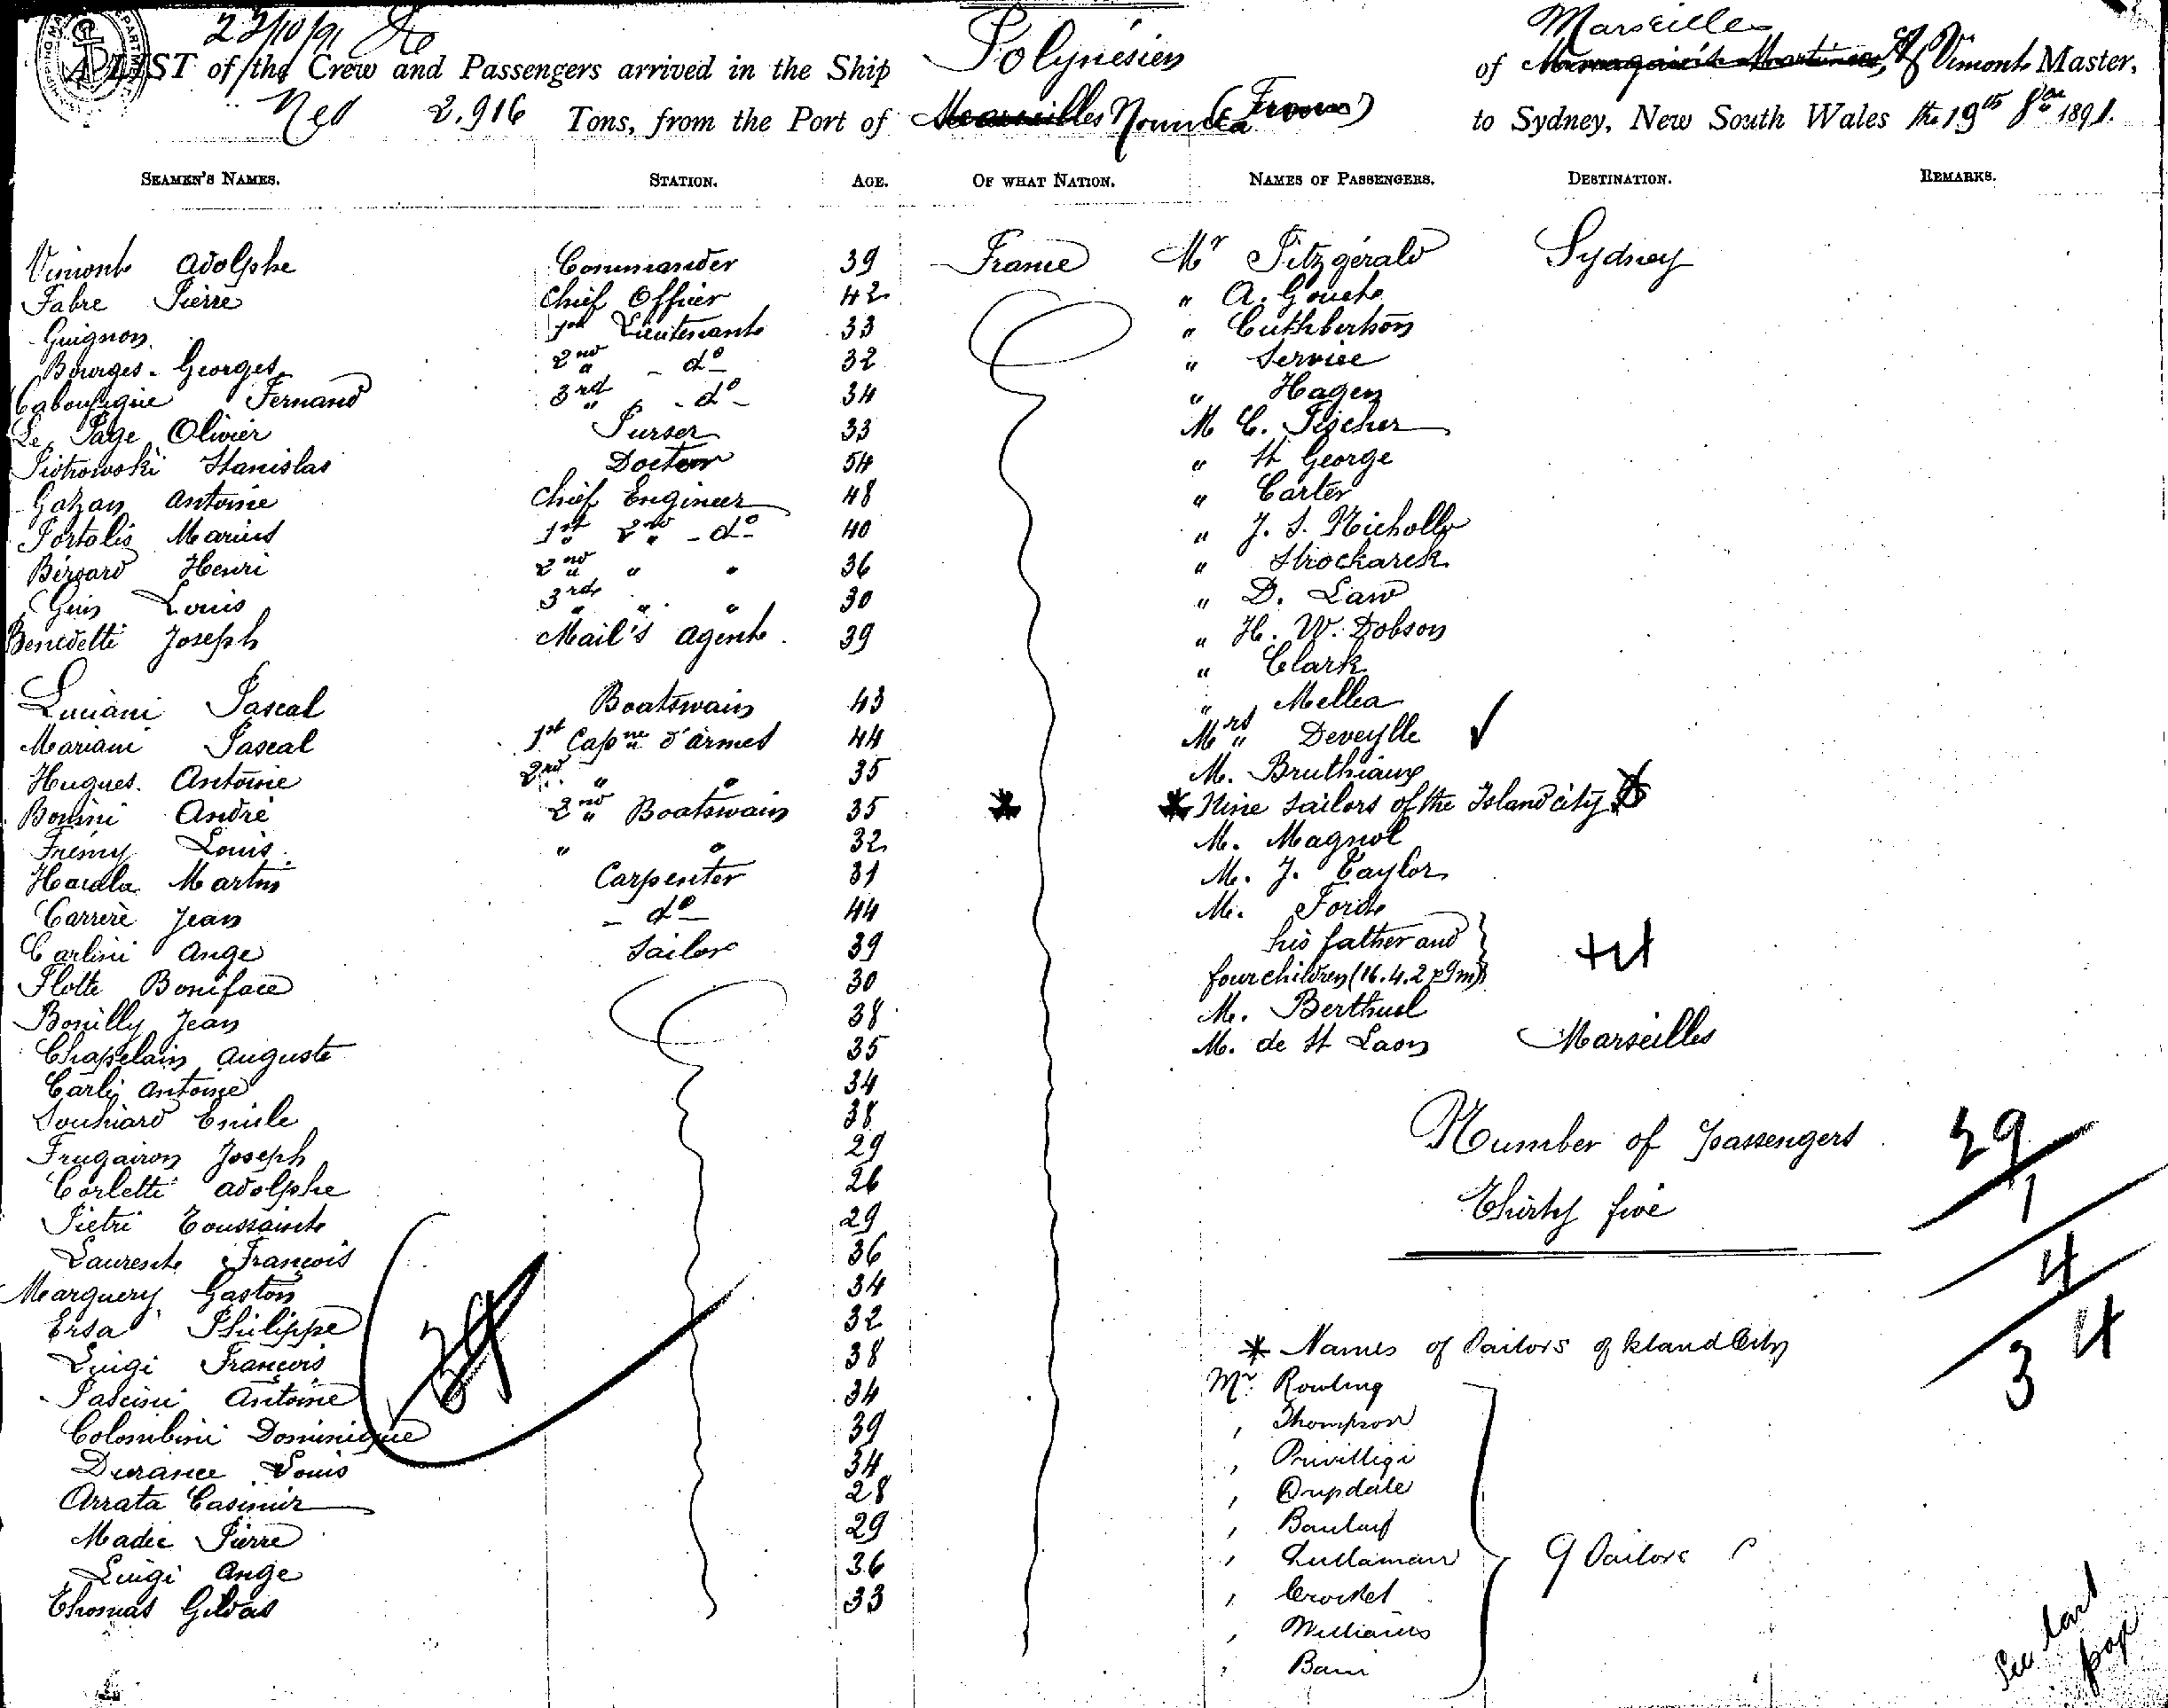 22/10/91
A LIST of the Crew and Passengers arrived in the Ship Polynésien of Marseilles Vimont Master,
2,916 Tons, from the Port of Marseilles Nouméa to Sydney, New South Wales the 19th 1891.
SEAMEN'S NAMES. STATION. AGE. OF WHAT NATION. NAMES OF PASSENGERS. DESTINATION. REMARKS.
Vimont Adolphe Commander 39 France Mr Fitzgerald Sydney
Fabre Pierre Chief Officer 42 " A. Gouch
Guignon 1st Lieutenant 33 " Cuthbertson
Bourges Georges 2nd " - do - 32 " Service
Fernand 3rd " - do - 34 " Hagen
Le Page Olivier Purser 33 M C. Fischer
Piotrowski Stanislas Doctor 54 " St George
Gazan Antoine Chief Engineer 48 " Carter
Portalis Marius 1st 2nd " - do - 40 " J. S. Nicholls
Bérard Henri 2nd " " " 36 "
Guis Louis 3rd " " " 30 " D. Law
Benedetti Joseph Mail's Agent 39 " H. W. Dobson
" Clark
Luciani Pascal Boatswain 43 " Mellea
Mariani Pascal 1st Capne d'armes 44 Mrs " Deveylle
Hugues Antoine 2nd " " 35 M. Bruthiaux
Bonini André 2nd " Boatswain 35 * * Nine Sailors of the Island City
Frémy Louis " " 32 M. Magnol
Martin Carpenter 31 M. J. Taylor
Carrère Jean - do - 44 M. Forde
Carlini Ange Sailor 39 his father and
Flotte Boniface 30 four children (16. 4. 2 & 9m)
Bouilly Jean 38 M. Berthuel
Chapelain Auguste 35 M. de St Laon Marseilles
Carli Antoine 34
Souhiard Emile 38
Frugairon Joseph 29 Number of passengers 29
Corletti Adolphe 26 1
Pietri Toussaint 29 Thirty five
Laurent François 36 4
Marguery Gaston 34
Ersa Philippe 32 34
Luigi François 38 * Names of Sailors of Island City
Pascini Antoine 34 Mr. Rowling
Colombini Dominique 39 " Thompson
Durance Louis 34 "
Arrata Casimir 28 "
Madec Pierre 29 "
Luigi Ange 36 " 9 Sailors
Thomas Gildas 33 " Crocket
" Williams
" Bain
See last page